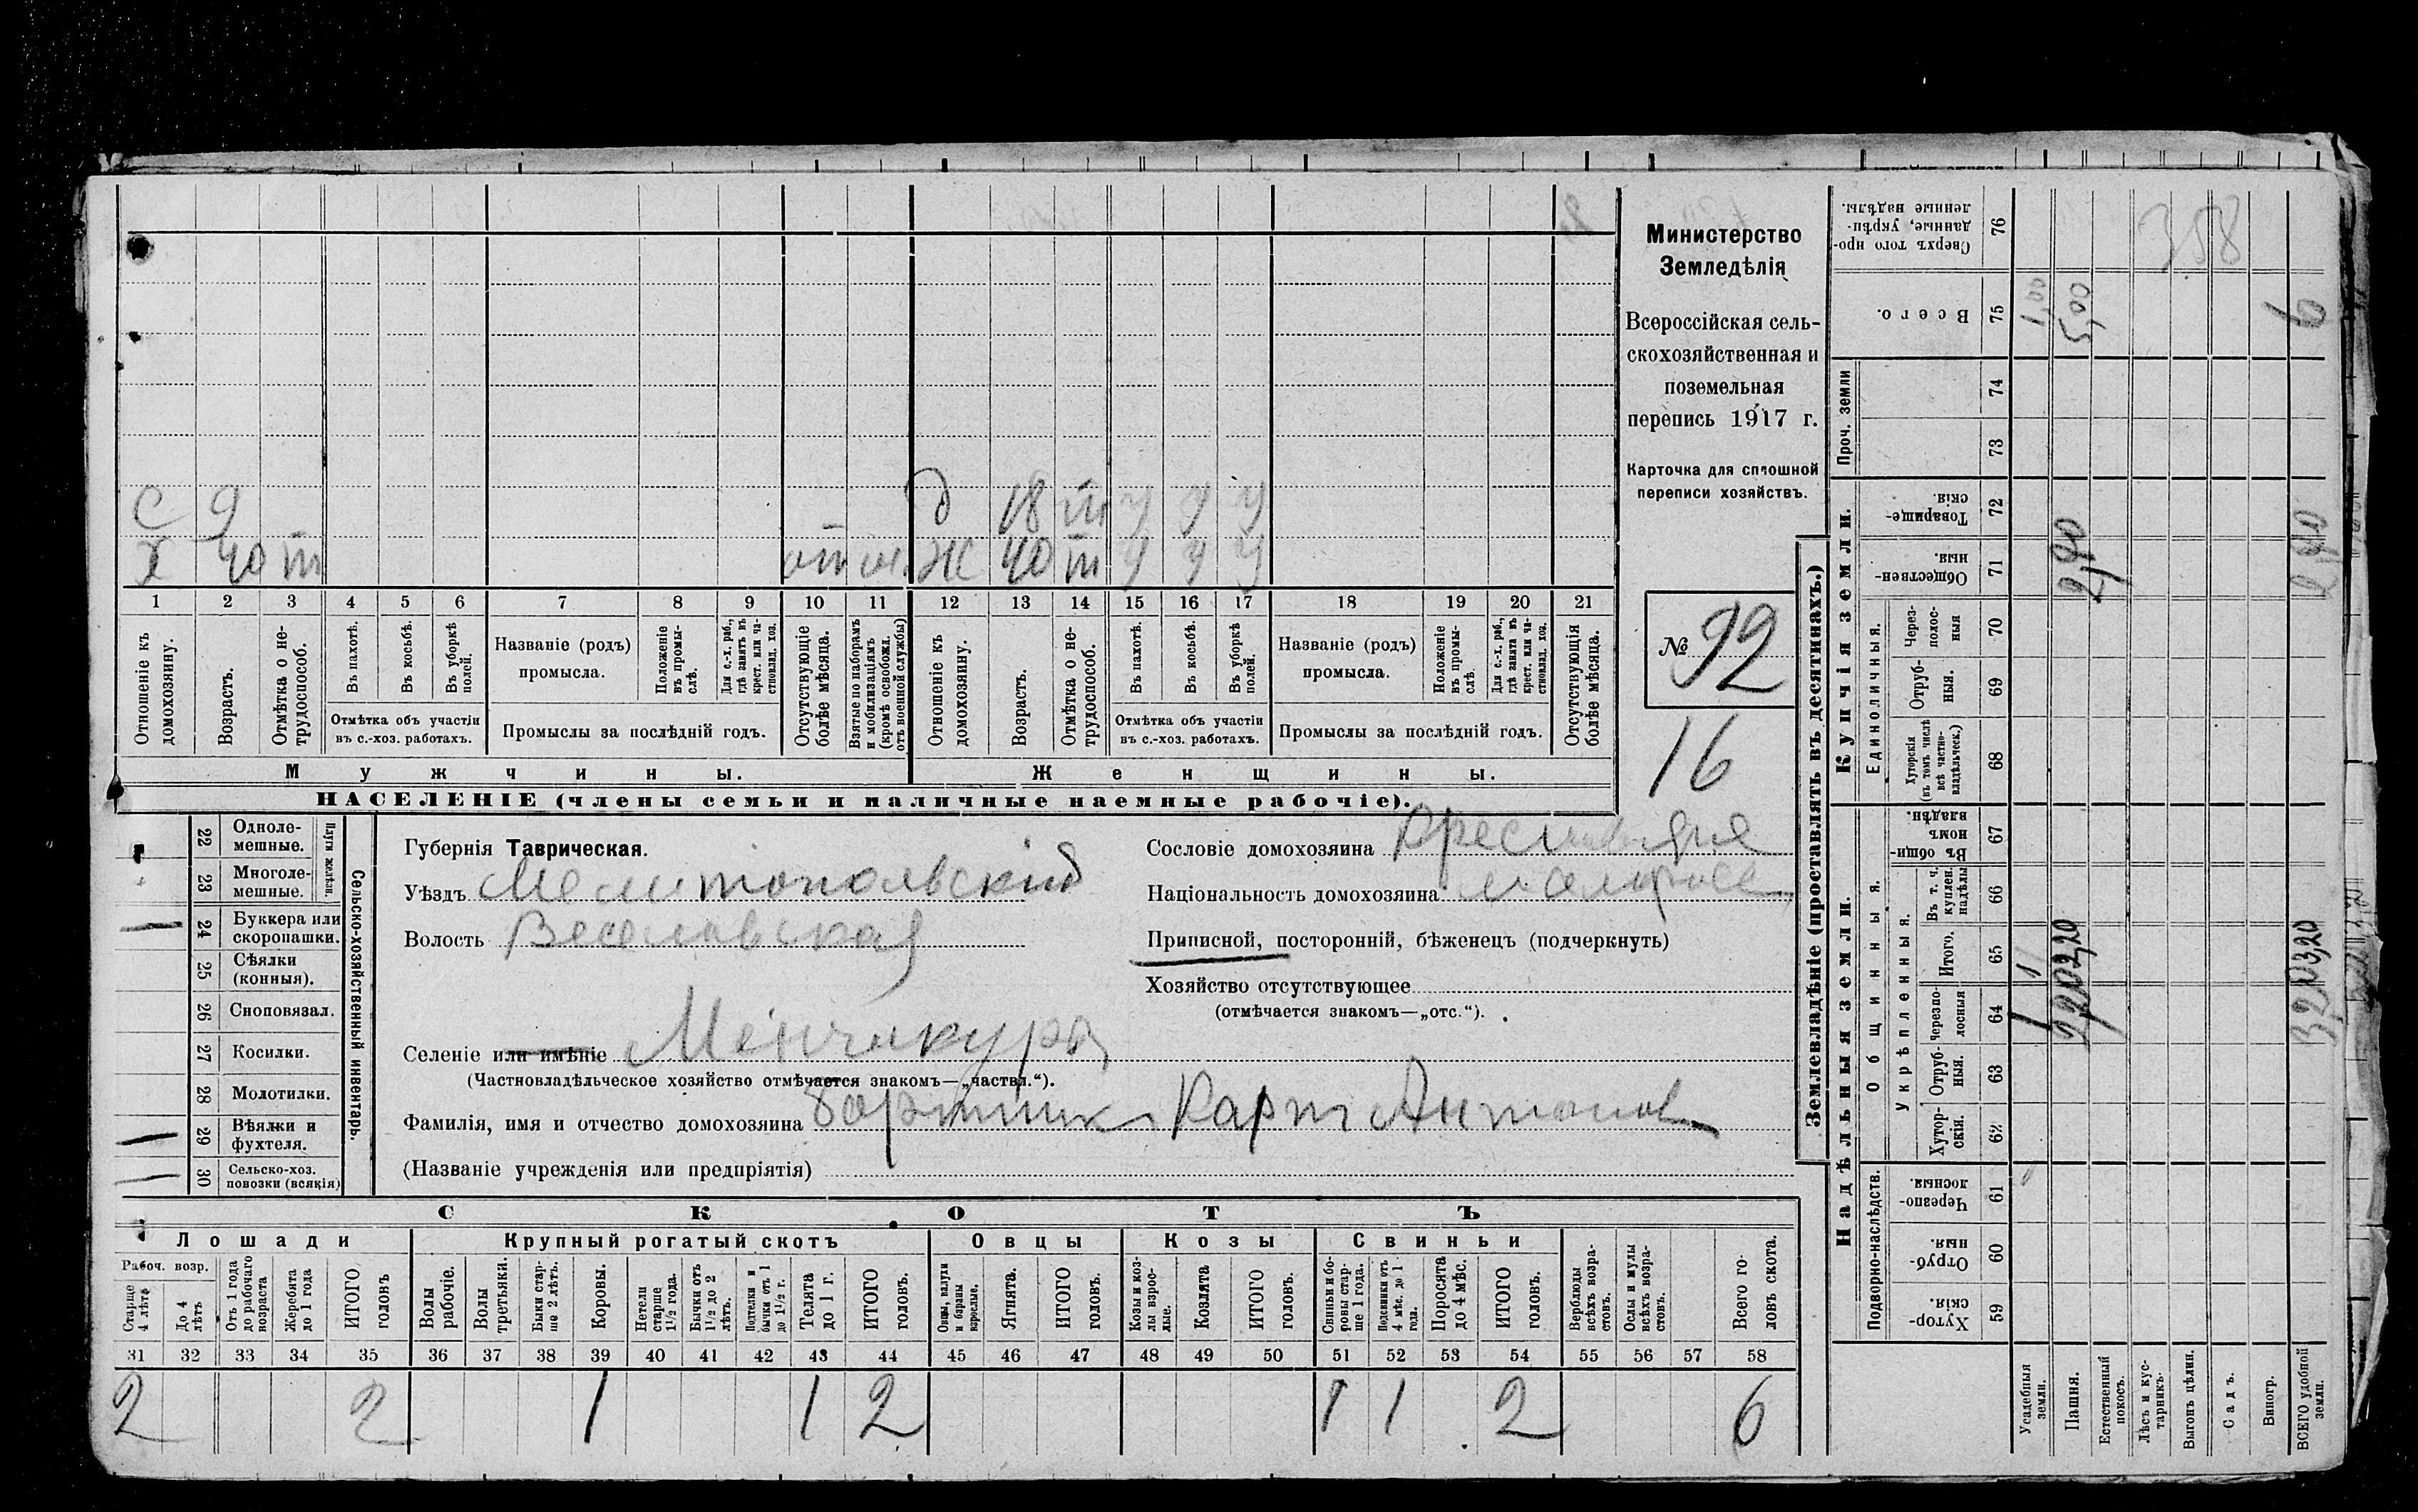 358
С 9 д 18 т у у у
Х 40 т от м. Ж 40 т у у у
1 2 3 4 5 6 7 8 9 10 11 12 13 14 15 16 17 18 19 20 21
Отношеніе къ домохозяину.
Возрастъ.
Отмѣтка о не-трудоспособ.
Въ пахотѣ.
Въ косьбѣ.
Въ уборкѣ полей.
Отмѣтка объ участіи
въ с.-хоз. работахъ.
Названіе (родъ)
промысла.
Положеніе въ промы-слѣ.
Для с.-х. раб., гдѣ занятъ въ крест. или ча-стновлад. хоз.
Промыслы за послѣдній годъ.
Отсутствующіе болѣе мѣсяца.
Взятые по наборамъ и мобилизаціямъ (кромѣ освобожд. отъ военной службы)
Отношеніе къ домохозяину.
Возрастъ.
Отмѣтка о не-трудоспособ.
Въ пахотѣ.
Въ косьбѣ.
Въ уборкѣ полей.
Отмѣтка объ участіи
въ с.-хоз. работахъ.
Названіе (родъ)
промысла.
Положеніе въ промы-слѣ
Для с.-х. раб., гдѣ занята въ крест. или ча-стновлад. хоз.
Промыслы за послѣдній годъ.
Отсутствующія болѣе мѣсяца.
Мужчины.
Женщины.
НАСЕЛЕНІЕ (члены семьи и наличные наемные рабочіе).
Министерство
Земледѣлія
Всероссійская сель-
скохозяйственная и
поземельная
перепись 1917 г.
Карточка для сплошной
переписи хозяйствъ.
№ 92
16
22 Одноле-мешные.
23 Многоле-мешные.
Плуги желѣзн.
24 Буккера или скоропашки.
25 Сѣялки (конныя).
26 Сноповязал.
27 Косилки.
28 Молотилки.
29 Вѣялки и фухтеля.
30 Сельско-хоз. повозки (всякія)
Сельско-хозяйственный инвентарь.
Губернія Таврическая.
Уѣздъ Мелитопольскій
Волость Веселовская
Селеніе или имѣніе Менчикуры
(Частновладѣльческое хозяйство отмѣчается знакомъ—„частвл.“).
Фамилія, имя и отчество домохозяина Бортник Карп Антонов
(Названіе учрежденія или предпріятія)
Сословіе домохозяина
Національность домохозяина малоросс
Приписной, посторонній, бѣженецъ (подчеркнуть)
Хозяйство отсутствующее
(отмѣчается знакомъ—„отс.“).
СКОТЪ
Лошади Крупный рогатый скотъ Овцы Козы Свиньи
Рабоч. возр.
Старше 4 лѣтъ
До 4 лѣтъ
Отъ 1 года до рабочаго возраста
Жеребята до 1 года
ИТОГО головъ
Волы рабочіе.
Волы третьяки.
Быки стар-ше 2 лѣтъ.
Коровы.
Нетели старше 1½ года.
Бычки отъ 1½ до 2 лѣтъ.
Подтелки и бычки отъ 1 до 1½ г.
Телята до 1 г.
ИТОГО головъ.
Овцы, валухи и бараны взрослые.
Ягнята.
ИТОГО головъ.
Козы и коз-лы взрос-лые.
Козлята
ИТОГО головъ.
Свиньи и бо-ровы стар-ше 1 года.
Подсвинки отъ 4 мѣс. до 1 года.
Поросята до 4 мѣс.
ИТОГО головъ.
Верблюды всѣхъ возра-стовъ.
Ослы и мулы всѣхъ возра-стовъ.
Всего го-ловъ скота.
31 32 33 34 35 36 37 38 39 40 41 42 43 44 45 46 47 48 49 50 51 52 53 54 55 56 57 58
2 2 1 1 2 1 1 2 6
Землевладѣніе (проставлять въ десятинахъ.)
Надѣльныя земли.
Купчія земли.
Проч. земли
Подворно-наслѣдств.
Общинныя.
Укрѣпленныя.
Единоличныя.
Сверхъ того про-данные, укрѣп-ленные надѣлы. 76
Всего. 75 1,00 5,00 6
74
73
Товарище-скія. 72
Обществен-ныя. 71 2,90 2,90
Через-полос-ныя 70
Отруб-ныя. 69
Хуторскія (въ томъ числѣ всѣ частно-владѣльческ.) 68
Въ общи-номъ владѣн. 67
Въ т. ч. куплен. надѣлы 66
Итого. 65 1 2,20 3,20
Черезпо-лосныя 64 1 2,20 3,20
Отруб-ныя. 63
Хутор-скія. 62
Черезпо-лосныя. 61
Отруб-ныя. 60
Хутор-скія. 59
Усадебныя земли.
Пашня.
Естественный покосъ.
Лѣсъ и кус-тарникъ.
Выгонъ цѣлин.
Садъ.
Виногр.
ВСЕГО удобной земли.